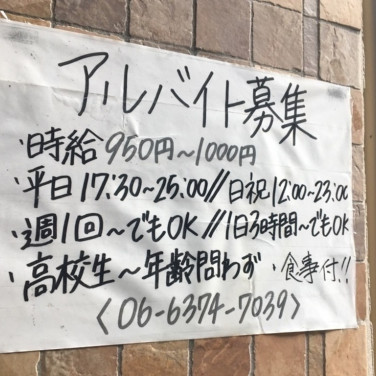 アルバイト募集
・時給950円~1000円
・平日17:30~25:00//日祝12:00~23:00
・週1回~でもOK//1日3時間~でもOK
・高校生~年齢問わず・食事付!!
〈06-6374-7039〉